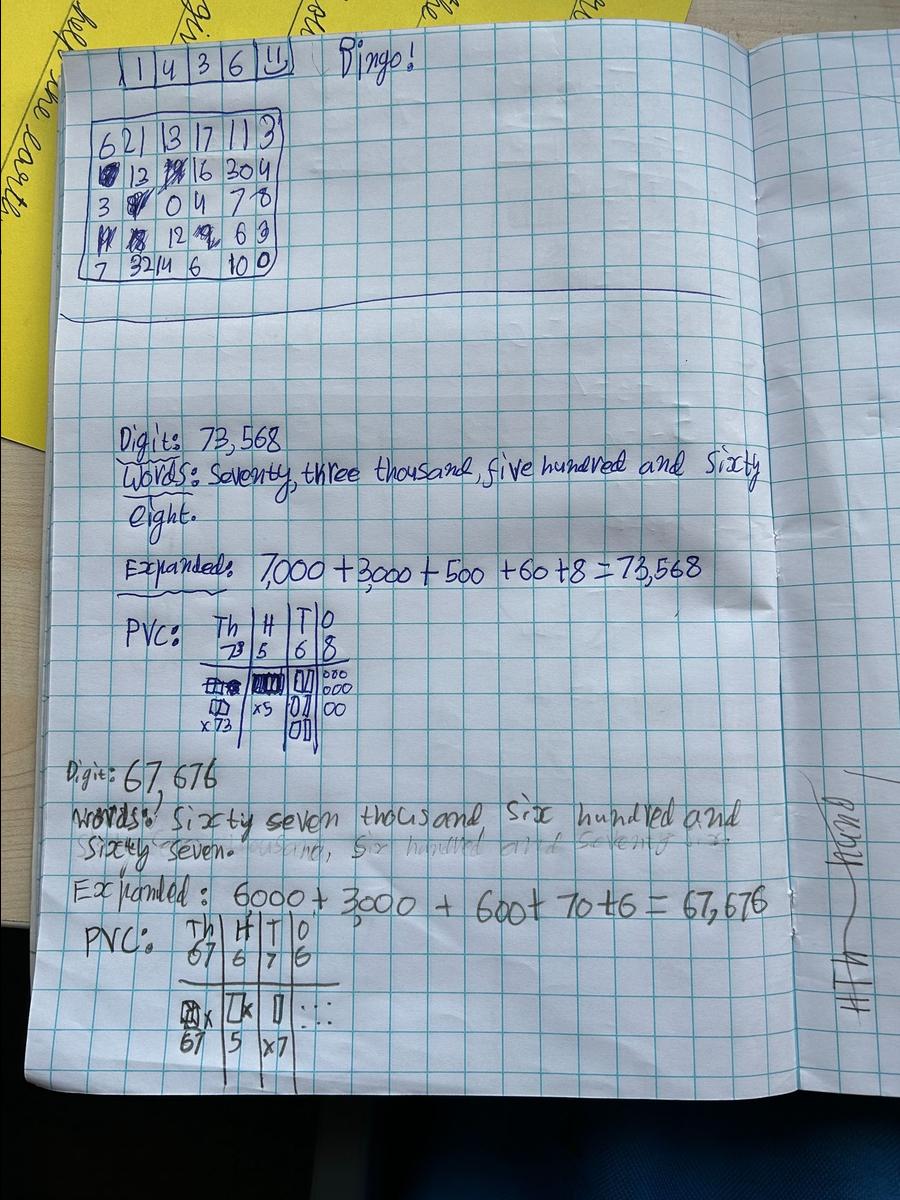 help the earth
the
1 4 3 6 Bingo!
6 21 13 17 11 3
13 16 30 4
3 0 4 7 8
12 6 3
7 32 14 6 10 0
Digit: 73,568
Words: Seventy, three thousand, five hundred and sixty
eight.
Expanded: 7,000 + 3,000 + 500 + 60 + 8 = 73,568
PVC: Th H T O
73 5 6 8
x73 x5
Digit: 67,676
Words: Sixty seven thousand six hundred and
Sixty seven.
Expanded: 6,000 + 3,000 + 600 + 70 + 6 = 67,676
PVC: Th H T O
67 6 7 6
x x
67 5 x7
HTh